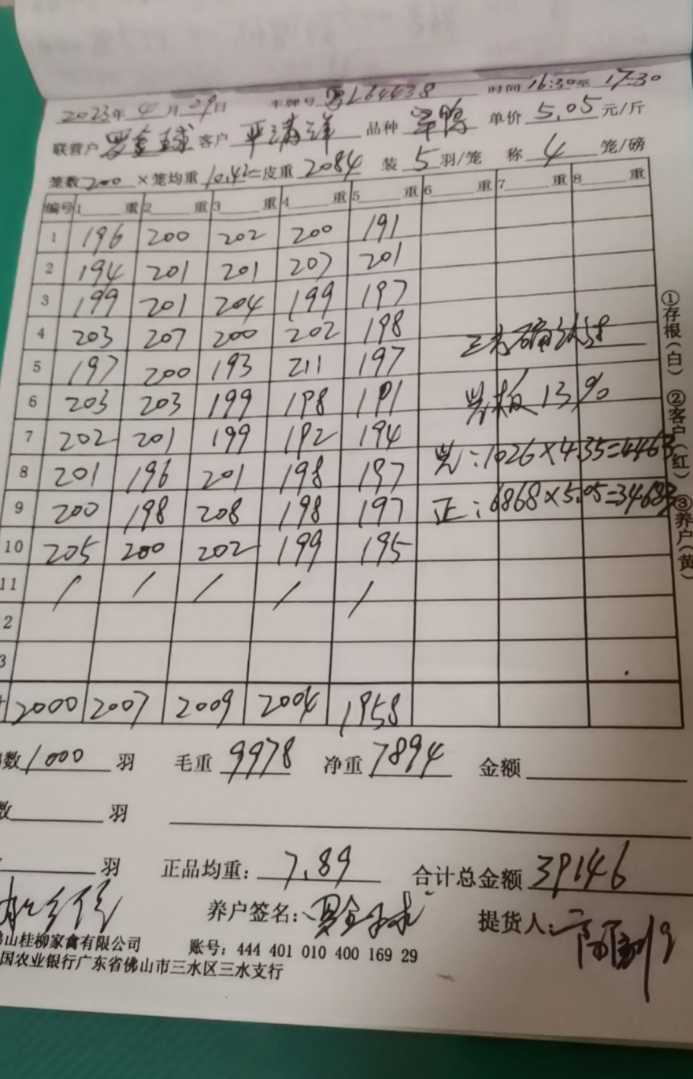 2023年4月29日 车牌号 时间16:30至17:30
联营户 客户 品种 单价5.05元/斤
笼数200×笼均重10.42=皮重2084 装5羽/笼 称4笼/磅
编号 1 重 2 重 3 重 4 重 5 重 6 重 7 重 8 重
1 196 200 202 200 191
2 194 201 201 207 201
3 199 201 204 199 197
4 203 207 200 202 198
5 197 200 193 211 197
6 203 203 199 198 191
7 202 201 199 192 194
8 201 196 201 198 197
9 200 198 208 198 197
10 205 200 202 199 195
11 / / / / /
2
3
2000 2007 2009 2004 1958
13%
:1026×4.35=4463
正:6868×5.05=34683
①存根(白) ②客户(红) ③养户(黄)
数1000羽 毛重9978 净重7894 金额
数 羽
羽 正品均重:7.89 合计总金额39146
养户签名: 提货人:
山桂柳家禽有限公司 账号:444 401 010 400 169 29
国农业银行广东省佛山市三水区三水支行